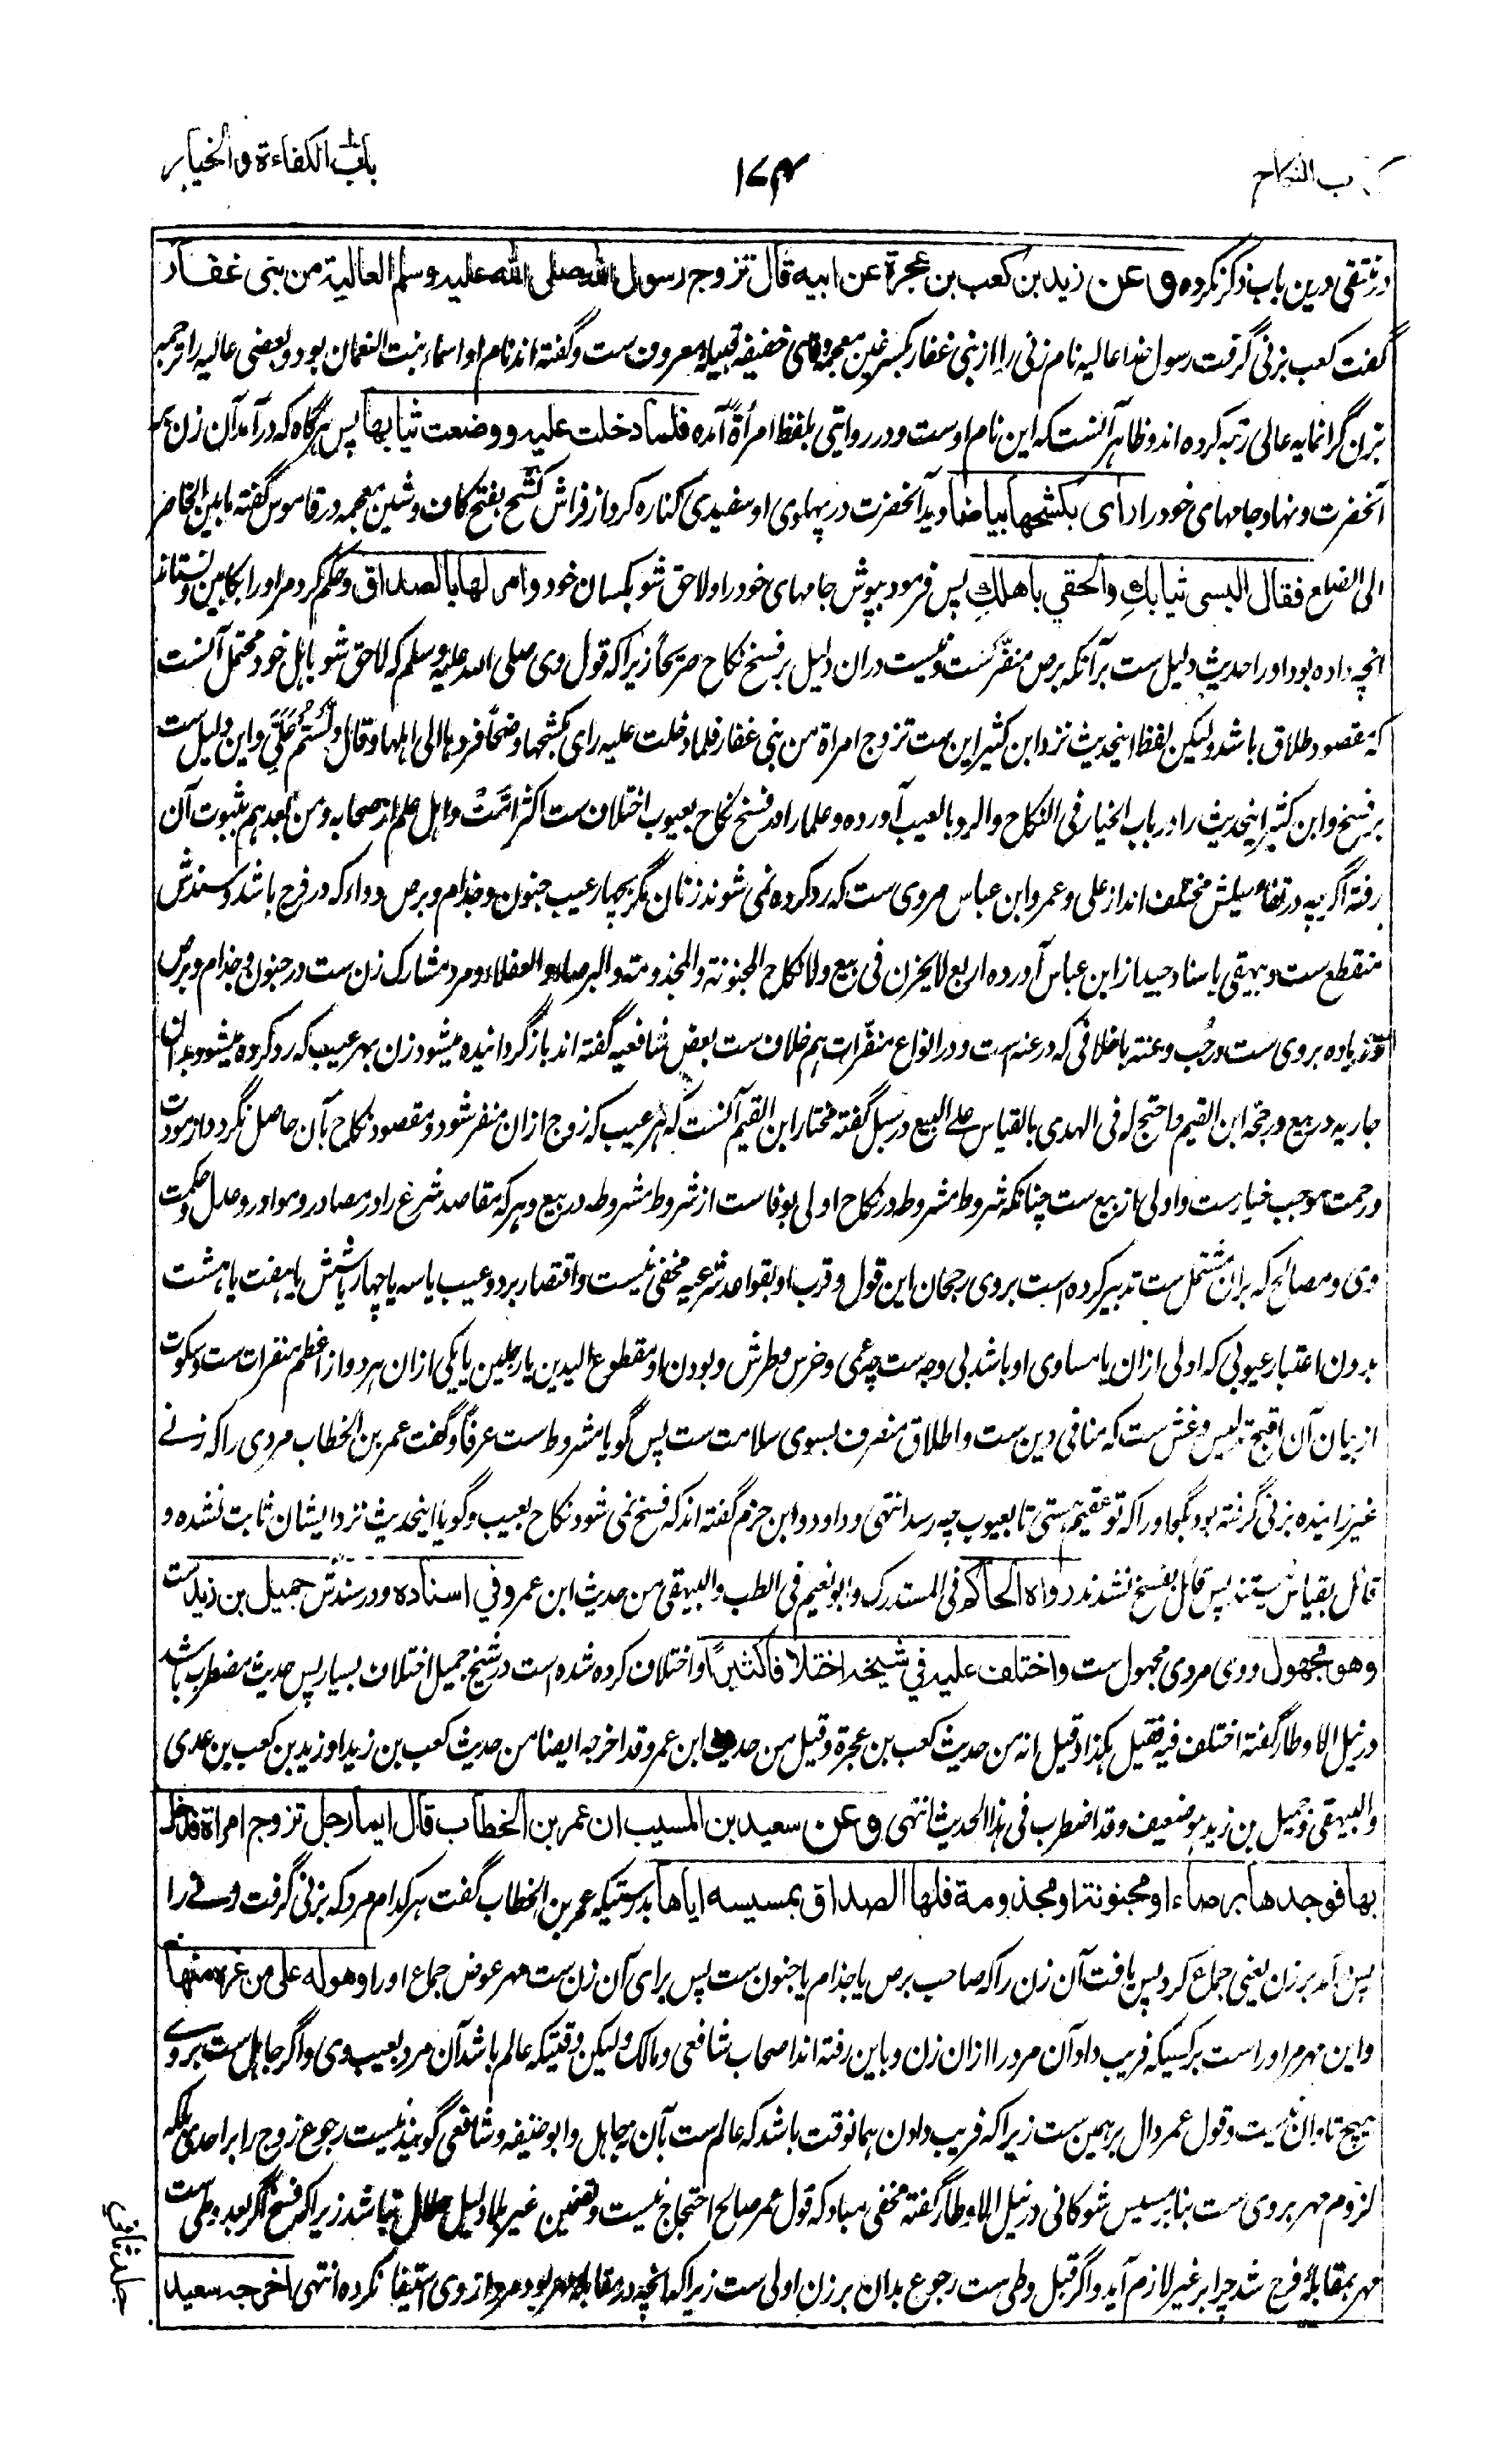 کتاب النکاح
۱۷۴
باب الکفاءة والخیار
در منتقی درین باب ذکر نکرده وعن زید بن کعب بن عجرة عن ابیه قال تزوج رسول الله صلی الله علیه وسلم العالیة من بنی غفار
گفت کعب بزنی گرفت رسول خدا عالیه نام زنی را از بنی غفار بکسر غین معجمه وفای خفیفه قبیلهٔ معروف ست وگفته اند نام او اسماء بنت النعمان بود وبعضی عالیه را ترجمه
بزن گرانمایه عالی رتبه کرده اند وظاهر آنست که این نام اوست ودر روایتی بلفظ امرأةً آمده فلما دخلت علیه ووضعت ثیابها پس هرگاه که درآمد آن زن بر
آنحضرت ونهاد جامهای خود را رأی بکشحها بیاضا دید آنحضرت در پهلوی او سفیدی کناره کرد از فراش کشح بفتح کاف وشین معجمه در قاموس گفته ما بین الخاصرة
الی الضلع فقال البسی ثیابكِ والحقي باهلكِ پس فرمود بپوش جامهای خود را ولاحق شو بکسان خود وامر لها بالصداق وحکم کرد مر او را بکابین ونستاند
انچه داده بود او را حدیث دلیل ست برآنکه برص منفّر ست ونیست دران دلیل بر فسخ نکاح صریحاً زیرا که قول وی صلی الله علیه وسلم که لاحق شو باهل خود محتمل آنست
که مقصود طلاق باشد ولیکن لفظ اینحدیث نزد ابن کثیر این ست تزوج امراة من بنی غفار فلما دخلت علیه رای بکشحها وضحاً فردها الی اهلها وقال دلّستم علیّ واین دلیل ست
بر فسخ وابن کثیر اینحدیث را در باب الخیار فی النکاح والرد بالعیب آورده وعلما را در فسخ نکاح بعیوب اختلاف ست اکثر امّت واهل علم از صحابه ومن بعدهم بثبوت آن
رفته اگرچه در تفاصیلش مختلف اند از علی وعمر وابن عباس مروی ست که رد کرده نمی شوند زنان مگر بچهار عیب جنون وجذام وبرص وداء که در فرج باشد وسندش
منقطع ست وبیهقی باسناد جید از ابن عباس آورده اربع لایجزن فی بیع ولا نکاح المجنونة والمجذومة والبرصاء والعفلاء ومرد مشارک زن ست در جنون وجذام وبرص
وزیاده بر وی ست در جُب وعنته باخلافی که در عنه است ودر انواع منفّرات هم خلاف ست بعض شافعیه گفته اند بازگردانیده میشود زن بهر عیب که رد کرده میشود بدان
جاریه در بیع ورجحه ابن القیم واحتج له فی الهدی بالقیاس علے البیع در سبل گفته مختار ابن القیم آنست که هر عیب که زوج ازان منفر شود ومقصود نکاح بآن حاصل نگردد از مودت
ورحمت موجب خیار ست واولی از بیع ست چنانکه شروط مشروطه در نکاح اولی بوفاست از شروط مشروطه در بیع وهر که مقاصد شرع را در مصادر وموارد وعدل وحکمت
وی ومصالح که بران مشتمل ست تدبیر کرده است بر وی رجحان این قول وقرب او بقواعد شرعیه مخفی نیست واقتصار بر دو عیب یا سه یا چهار یا شش یا هفت یا هشت
بدون اعتبار عیوبی که اولی ازان یا مساوی او باشد بی وجه ست چه عمی وخرس وطرش وبودن او مقطوع الیدین یا رجلین یا یکی ازان هر دو از اعظم منفرات ست وسکوت
از بیان آن اقبح تدلیس وغش ست که منافی دین ست واطلاق منصرف بسوی سلامت ست پس گویا مشروط ست عرفاً وگفت عمر بن الخطاب مردی را که زنے
غیر زاینده بزنی گرفته بود بگو او را که تو عقیم هستی تا بعیوب چه رسد انتهی وداود وابن حزم گفته اند که فسخ نمی شود نکاح بعیب وگویا اینحدیث نزد ایشان ثابت نشده و
قائل بقیاس نیستند پس قائل بفسخ نشدند رواه الحاکم فی المستدرک وابو نعیم فی الطب والبیهقی من حدیث ابن عمر وفي اسناده ودر سندش جمیل بن زید ست
وهو مجهول ووی مردی مجهول ست واختلف علیه في شیخه اختلافا کثیرًا واختلاف کرده شده است در شیخ جمیل اختلاف بسیار پس حدیث مضطرب باشد
در نیل الاوطار گفته اختلف فیه فقیل هکذا وقیل انه من حدیث کعب بن عجرة وقیل من حدیث ابن عمر وقد اخرجه ایضا من حدیث کعب بن زید او زید بن کعب بن عدی
والبیهقی وجمیل بن زید هو ضعیف وقد اضطرب فی هذا الحدیث انتهی وعن سعید بن المسیب ان عمر بن الخطاب قال ایما رجل تزوج امراة فدخل
بها فوجدها برصاء او مجنونة او مجذومة فلها الصداق بمسیسه ایاها بدرستیکه عمر بن الخطاب گفت هر کدام مرد که بزنی گرفت زنے را
پس درآمد بر زن یعنی جماع کرد پس یافت آن زن را که صاحب برص یا جذام یا جنون ست پس برای آن زن ست مهر عوض جماع او را وهو له علی من غره منها
واین مهر مر او راست بر کسیکه فریب داد آن مرد را ازان زن وباین رفته اند اصحاب شافعی ومالک ولیکن وقتیکه عالم باشد آن مرد بعیب وی واگر جاهل ست بروے
هیچ تاوان نیست وقول عمر دال بر همین ست زیرا که فریب دادن همانوقت باشد که عالم ست بآن نه جاهل وابو حنیفه وشافعی گویند نیست رجوع زوج را بر احدی بلکه
لزوم مهر بر وی ست بنابر مسیس شوکانی در نیل الاوطار گفته مخفی مباد که قول عمر صالح احتجاج نیست وتضمین غیر بلا دلیل حلال نباشد زیرا که فسخ اگر بعد وطی ست
مهر بمقابلهٔ فرج شد چرا بر غیر لازم آید واگر قبل وطی ست رجوع بدان بر زن اولی ست زیرا که انچه در مقابله مهر بود مرد از وی استیفا نکرده انتهی اخرجه سعید
جلد ثانی